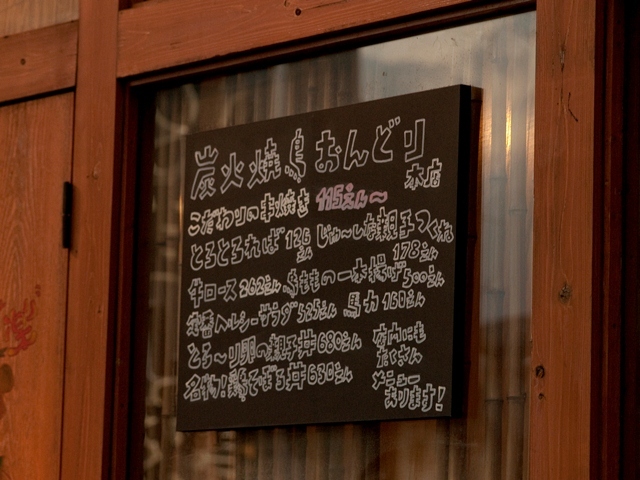 炭火焼鳥 おんどり
本店
こだわりの串焼き 115えん〜
とろとろればー 126えん じゅ〜しな親子つくね 178えん
牛ロース 262えん 鳥ももの一本揚げ 500えん
定番ヘルシーサラダ 525えん 馬力 160えん
とろ〜り卵の親子丼 680えん
名物!鶏そぼろ丼 630えん
店内にも
たくさん
メニュー
あります!